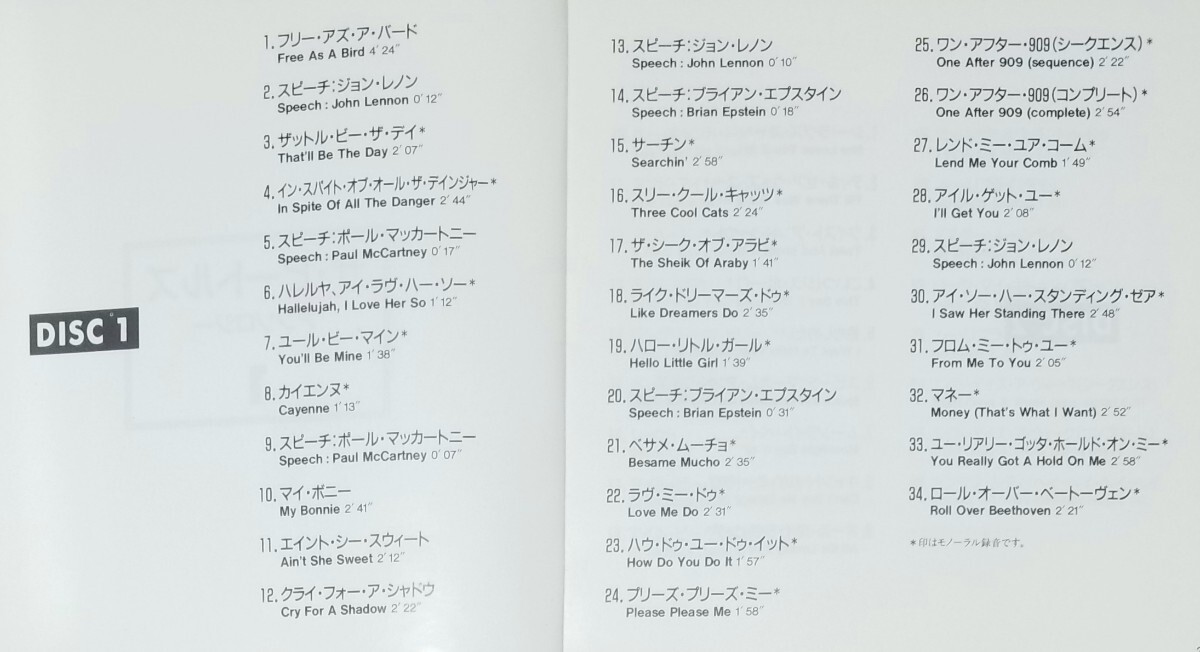 DISC 1
1. フリー・アズ・ア・バード
Free As A Bird 4′24″
2. スピーチ:ジョン・レノン
Speech : John Lennon 0′12″
3. ザットル・ビー・ザ・デイ*
That'll Be The Day 2′07″
4. イン・スパイト・オブ・オール・ザ・デインジャー*
In Spite Of All The Danger 2′44″
5. スピーチ:ポール・マッカートニー
Speech : Paul McCartney 0′17″
6. ハレルヤ、アイ・ラヴ・ハー・ソー*
Hallelujah, I Love Her So 1′12″
7. ユール・ビー・マイン*
You'll Be Mine 1′38″
8. カイエンヌ*
Cayenne 1′13″
9. スピーチ:ポール・マッカートニー
Speech : Paul McCartney 0′07″
10. マイ・ボニー
My Bonnie 2′41″
11. エイント・シー・スウィート
Ain't She Sweet 2′12″
12. クライ・フォー・ア・シャドウ
Cry For A Shadow 2′22″
13. スピーチ:ジョン・レノン
Speech : John Lennon 0′10″
14. スピーチ:ブライアン・エプスタイン
Speech : Brian Epstein 0′18″
15. サーチン*
Searchin' 2′58″
16. スリー・クール・キャッツ*
Three Cool Cats 2′24″
17. ザ・シーク・オブ・アラビ*
The Sheik Of Araby 1′41″
18. ライク・ドリーマーズ・ドゥ*
Like Dreamers Do 2′35″
19. ハロー・リトル・ガール*
Hello Little Girl 1′39″
20. スピーチ:ブライアン・エプスタイン
Speech : Brian Epstein 0′31″
21. ベサメ・ムーチョ*
Besame Mucho 2′35″
22. ラヴ・ミー・ドゥ*
Love Me Do 2′31″
23. ハウ・ドゥ・ユー・ドゥ・イット*
How Do You Do It 1′57″
24. プリーズ・プリーズ・ミー*
Please Please Me 1′58″
25. ワン・アフター・909(シークエンス)*
One After 909 (sequence) 2′22″
26. ワン・アフター・909(コンプリート)*
One After 909 (complete) 2′54″
27. レンド・ミー・ユア・コーム*
Lend Me Your Comb 1′49″
28. アイル・ゲット・ユー*
I'll Get You 2′08″
29. スピーチ:ジョン・レノン
Speech : John Lennon 0′12″
30. アイ・ソー・ハー・スタンディング・ゼア*
I Saw Her Standing There 2′48″
31. フロム・ミー・トゥ・ユー*
From Me To You 2′05″
32. マネー*
Money (That's What I Want) 2′52″
33. ユー・リアリー・ゴッタ・ホールド・オン・ミー*
You Really Got A Hold On Me 2′58″
34. ロール・オーバー・ベートーヴェン*
Roll Over Beethoven 2′21″
*印はモノーラル録音です。